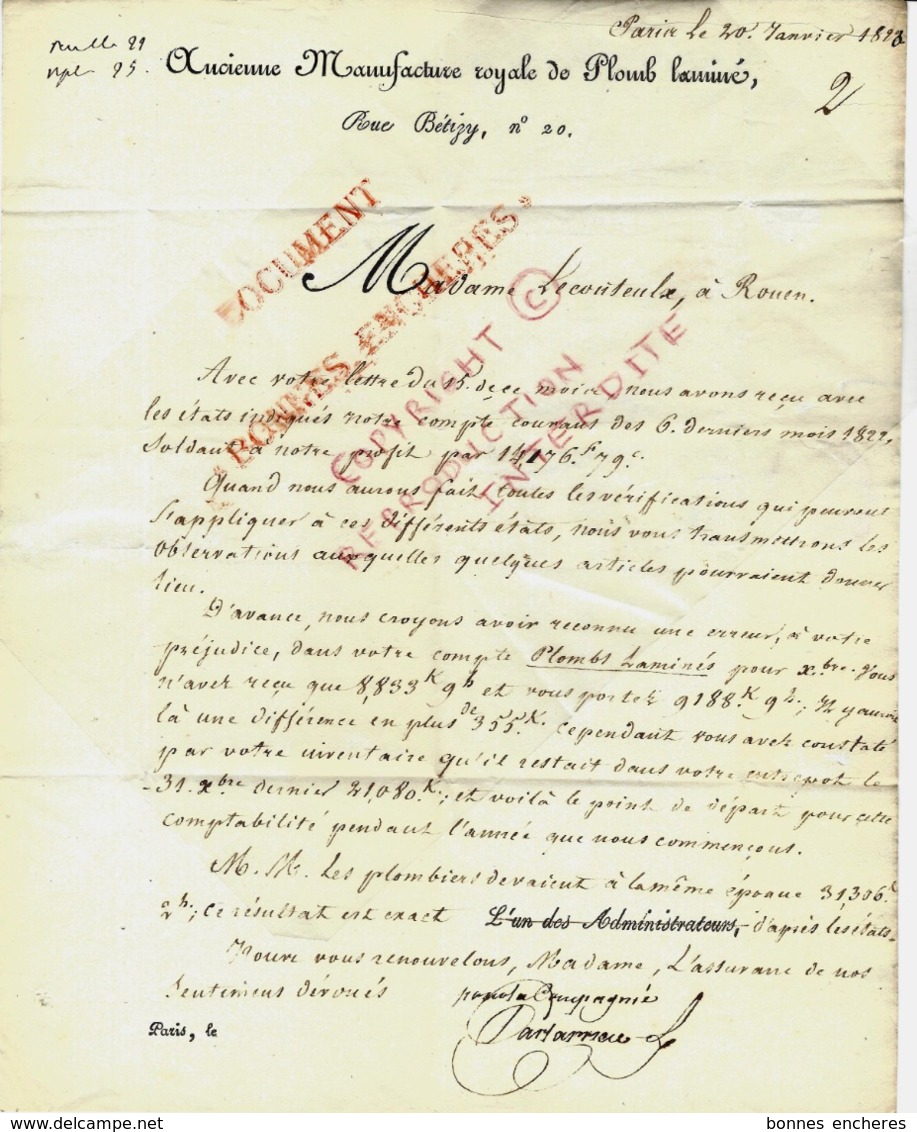 Paris Le 20. Janvier 1823
21
25.
Ancienne Manufacture royale de Plomb laminé,
2
Rue Bétizy, nº 20.
DOCUMENT
"BONNES ENCHERES"
COPYRIGHT ©
REPRODUCTION
INTERDITE
Madame Lecouteulx, à Rouen.
Avec votre lettre du 15. de ce mois nous avons reçu avec
les états indiqués notre compte courant des 6. derniers mois 1822.
Soldant à notre profit par 14,176.f 79.c
Quand nous aurons fait toutes les vérifications qui peuvent
S'appliquer à ces différents états, nous vous transmettrons les
Observations auxquelles quelques articles pourraient donner
lieu.
D'avance, nous croyons avoir reconnu une erreur, à votre
préjudice, dans votre compte Plombs Laminés pour x.bre. Vous
n'avez reçu que 8,833K 9h et vous portez 9188K 9h.; Il y aurait
là une différence en plus de 355K. Cependant vous avez constaté
par votre inventaire qu'il restait dans votre entrepot le
31. xbre dernier 21,080.K; et voilà le point de départ pour cette
Comptabilité pendant l'année que nous commençons.
M. M. Les plombiers devaient à la même époque 31,306K
2h; ce résultat est exact L'un des Administrateurs, d'après les états.
Nous vous renouvelons, Madame, L'assurance de nos
Sentimens dévoués pour la Compagnie
Paris, le
bonnes encheres